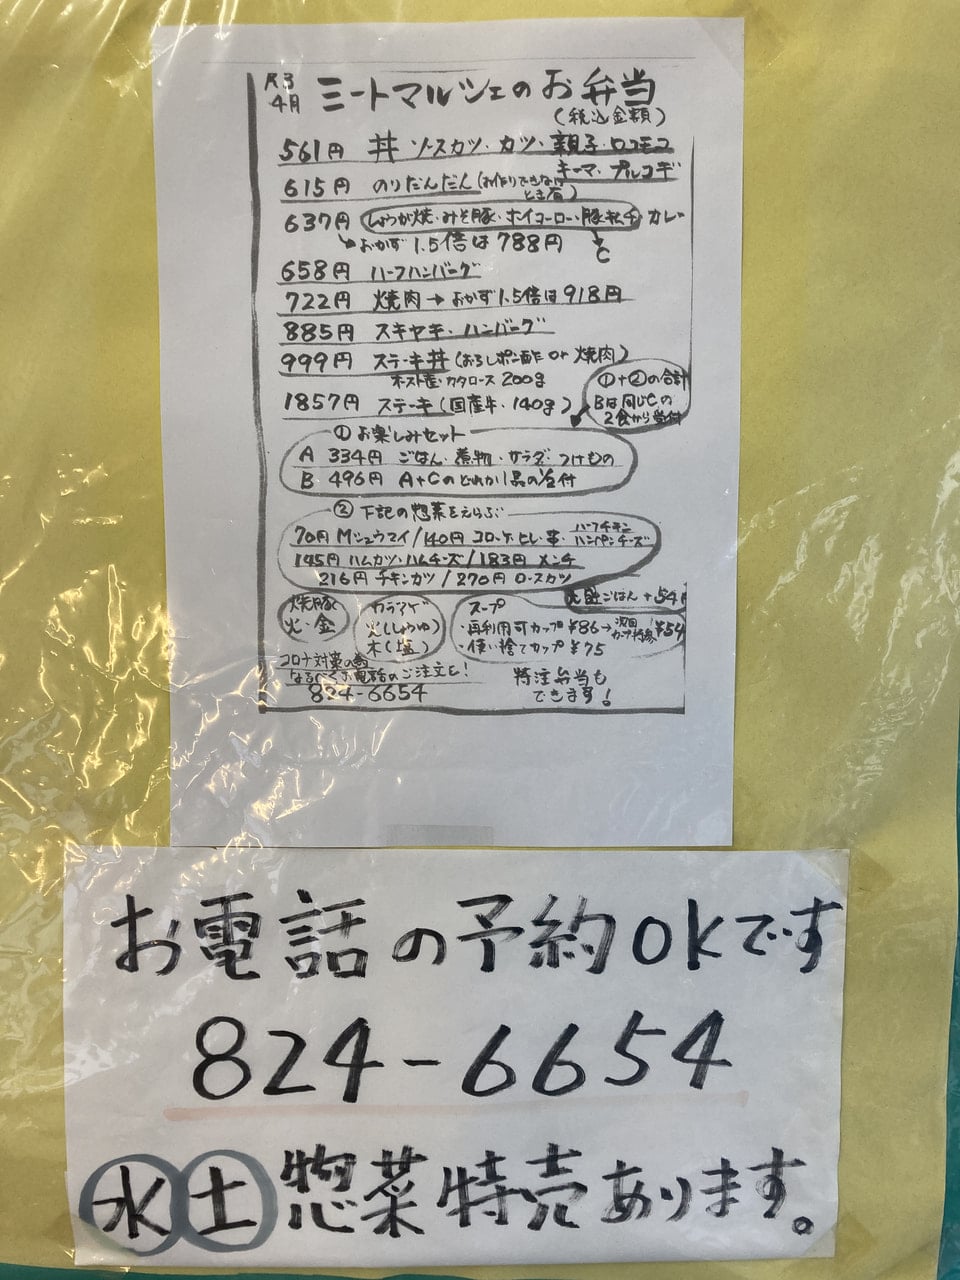 R3 4月 ミートマルシェのお弁当
(税込金額)
561円 丼 ソースカツ・カツ・親子・ロコモコ
キーマ・プルコギ
615円 のりだんだん(お作りできない
とき有)
637円 しょうが焼・みそ豚・ホイコーロー・豚キムチ カレー
↳おかず1.5倍は788円 C
658円 ハーフハンバーグ
722円 焼肉→おかず1.5倍は918円
885円 スキヤキ・ハンバーグ
999円 ステーキ丼(おろしポン酢 or 焼肉)
オースト産・カタロース 200g
①+②の合計
Bは同じCの
2食から受付
1857円 ステーキ(国産牛・140g)
①お楽しみセット
A 334円 ごはん・煮物・サラダ・つけもの
B 496円 A+Cのどれか1品の盛付
②下記の惣菜をえらぶ
70円 Mシュウマイ/140円 コロッケ・ヒレ・串・ハーフチキン
ハンペンチーズ
145円 ハムカツ・ハムチーズ/183円 メンチ
216円 チキンカツ/270円 ロースカツ
大盛ごはん +54円
焼豚
火・金
カラアゲ
火(しょうゆ)
木(塩)
スープ
・再利用可カップ¥86→次回カップ持参¥54
・使い捨てカップ ¥75
コロナ対策の為
なるべくお電話のご注文を!
824-6654
特注弁当も
できます!
お電話の予約OKです
824-6654
水 土 惣菜特売あります。